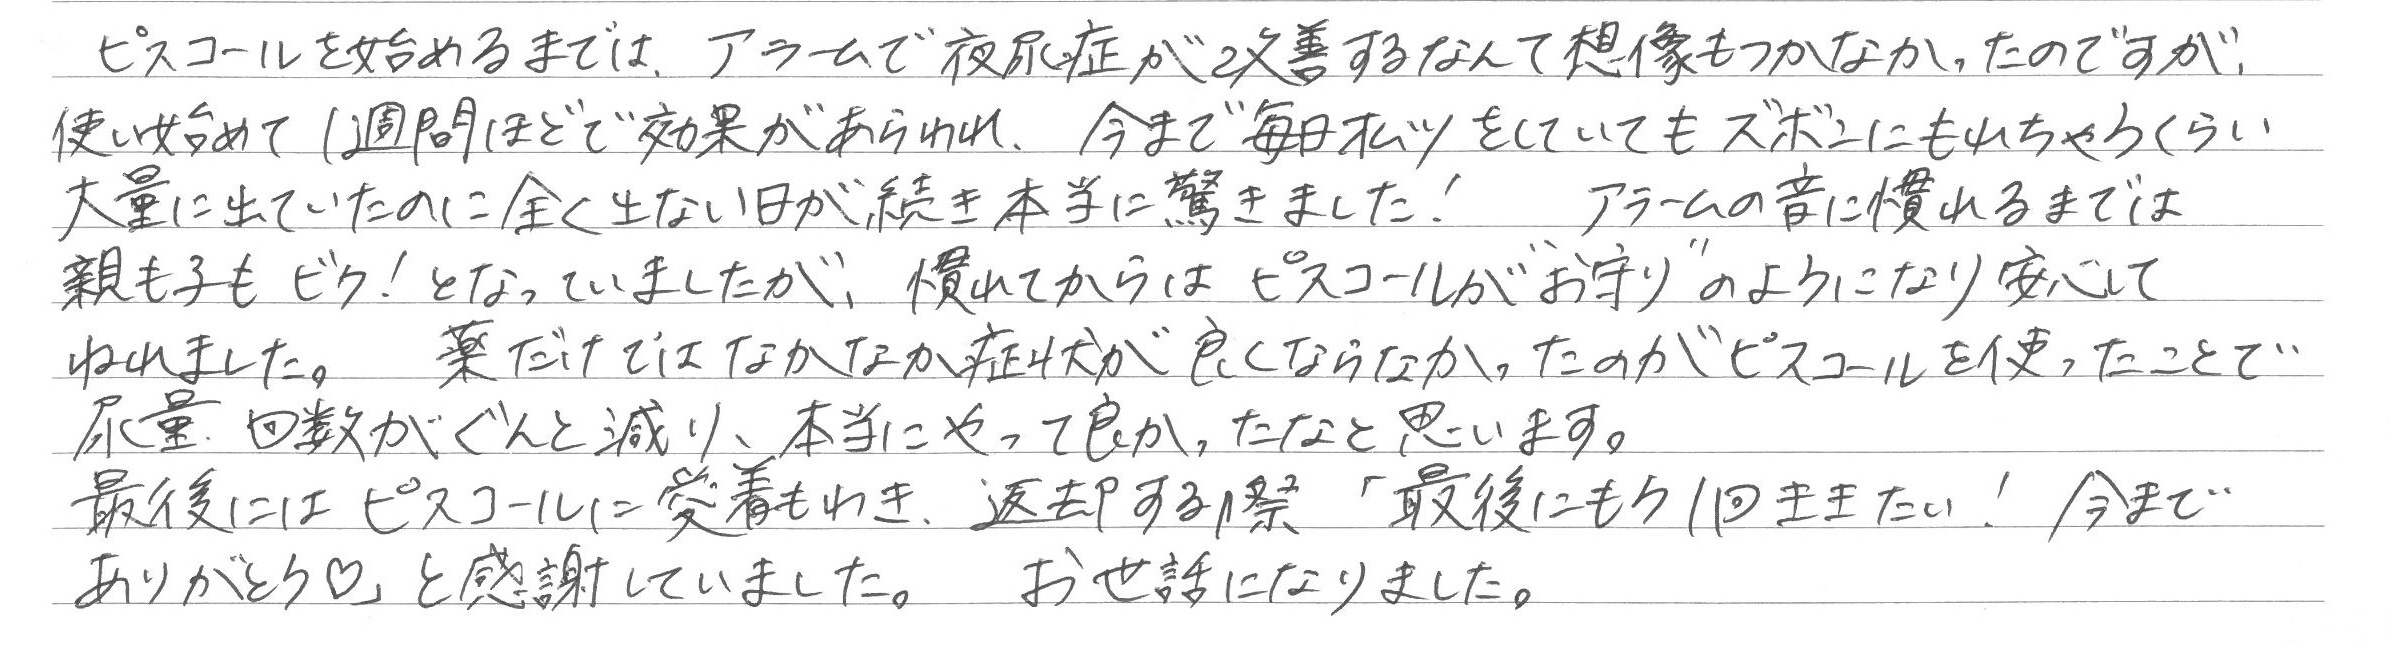 ピスコールを始めるまでは、アラームで夜尿症が改善するなんて想像もつかなかったのですが、
使い始めて1週間ほどで効果があらわれ、今まで毎日オムツをしていてもズボンにもれちゃうくらい
大量に出ていたのに全く出ない日が続き本当に驚きました! アラームの音に慣れるまでは
親も子もビク!となっていましたが、慣れてからはピスコールが"お守り"のようになり安心して
ねれました。 薬だけではなかなか症状が良くならなかったのがピスコールを使ったことで
尿量、回数がぐんと減り、本当にやって良かったなと思います。
最後にはピスコールに愛着もわき、返却する際「最後にもう1回ききたい! 今まで
ありがとう♡」と感謝していました。 お世話になりました。